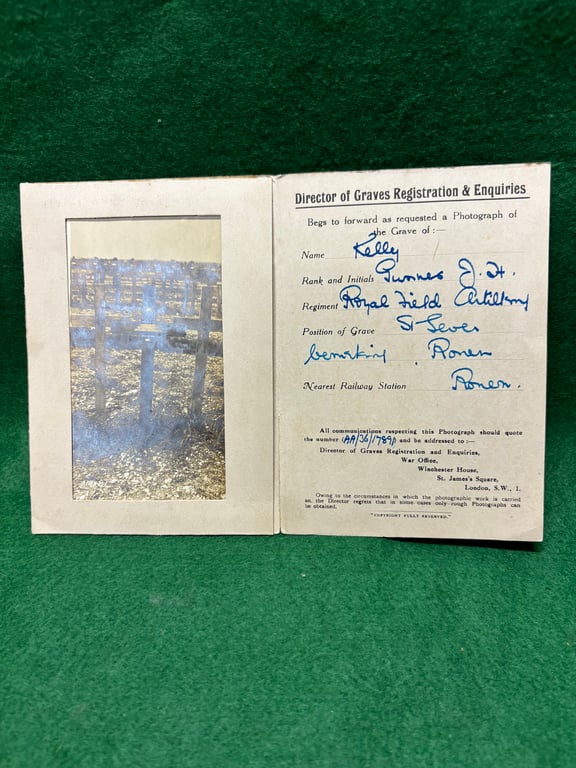 Director of Graves Registration & Enquiries
Begs to forward as requested a Photograph of
the Grave of :—
Name Kelly
Rank and Initials Gunner J. H.
Regiment Royal Field Artillery
Position of Grave St Sever
Cemetery, Rouen
Nearest Railway Station Rouen.
All communications respecting this Photograph should quote
the number (AA/36/1789) and be addressed to :—
Director of Graves Registration and Enquiries,
War Office,
Winchester House,
St. James's Square,
London, S.W., 1.
Owing to the circumstances in which the photographic work is carried
on, the Director regrets that in some cases only rough Photographs can
be obtained.
"COPYRIGHT FULLY RESERVED."